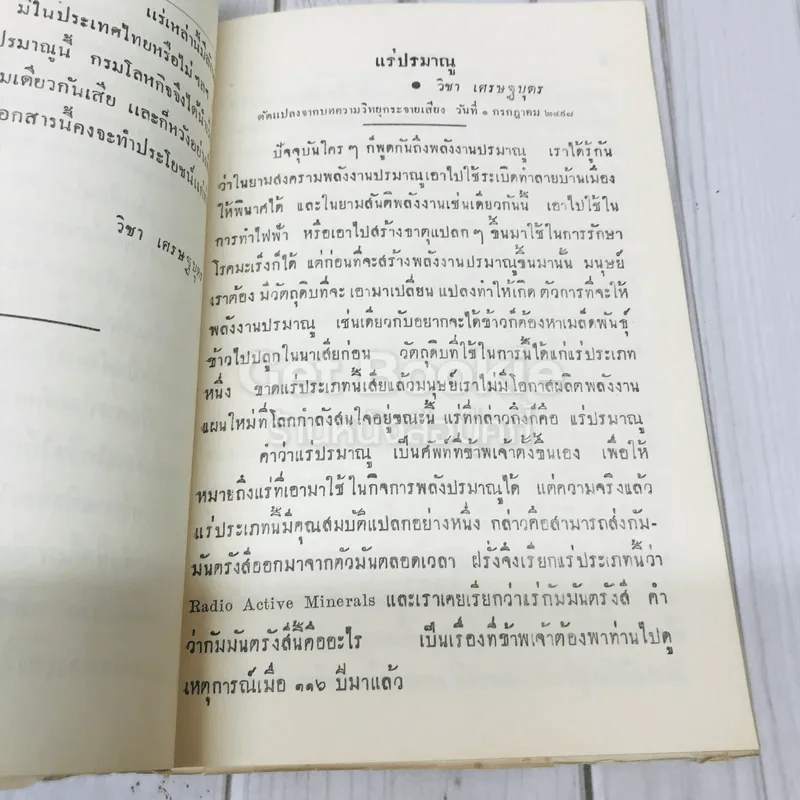 แร่เหล่านี้มี
มีในประเทศไทยหรือไม่ ฯลฯ
ปรมาณูนี้ กรมโลหกิจจึงได้นำ
มเดียวกันเสีย และก็หวังอย่าง
อกสารนี้คงจะทำประโยชน์แก่
วิชา เศรษฐบุตร
แร่ปรมาณู
วิชา เศรษฐบุตร
ดัดแปลงจากบทความวิทยุกระจายเสียง วันที่ ๑ กรกฎาคม ๒๔๙๗
ปัจจุบันใคร ๆ ก็พูดกันถึงพลังงานปรมาณู เราได้รู้กัน
ว่าในยามสงครามพลังงานปรมาณูเอาไปใช้ระเบิดทำลายบ้านเมือง
ให้พินาศได้ และในยามสันติพลังงานเช่นเดียวกันนี้ เอาไปใช้ใน
การทำไฟฟ้า หรือเอาไปสร้างธาตุแปลก ๆ ขึ้นมาใช้ในการรักษา
โรคมะเร็งก็ได้ แต่ก่อนที่จะสร้างพลังงานปรมาณูขึ้นมานั้น มนุษย์
เราต้อง มีวัตถุดิบที่จะ เอามาเปลี่ยน แปลงทำให้เกิด ตัวการที่จะให้
พลังงานปรมาณู เช่นเดียวกับอยากจะได้ข้าวก็ต้องหาเมล็ดพันธุ์
ข้าวไปปลูกในนาเสียก่อน วัตถุดิบที่ใช้ในการนี้ได้แก่แร่ประเภท
หนึ่ง ขาดแร่ประเภทนี้เสียแล้วมนุษย์เราไม่มีโอกาสผลิตพลังงาน
แผนใหม่ที่โลกกำลังสนใจอยู่ขณะนี้ แร่ที่กล่าวถึงก็คือ แร่ปรมาณู
คำว่าแร่ปรมาณู เป็นศัพท์ที่ข้าพเจ้าตั้งขึ้นเอง เพื่อให้
หมายถึงแร่ที่เอามาใช้ ในกิจการพลังปรมาณูได้ แต่ความจริงแล้ว
แร่ประเภทนี้มีคุณสมบัติแปลกอย่างหนึ่ง กล่าวคือสามารถส่งกัม-
มันตรังสีออกมาจากตัวมันตลอดเวลา ฝรั่งจึงเรียกแร่ประเภทนี้ว่า
Radio Active Minerals และเราเคยเรียกว่าแร่กัมมันตรังสี คำ
ว่ากัมมันตรังสีนี้คืออะไร เป็นเรื่องที่ข้าพเจ้าต้องพาท่านไปดู
เหตุการณ์เมื่อ ๑๑๖ ปีมาแล้ว
Get Bookie
ร้านหนังสือมือหนึ่ง